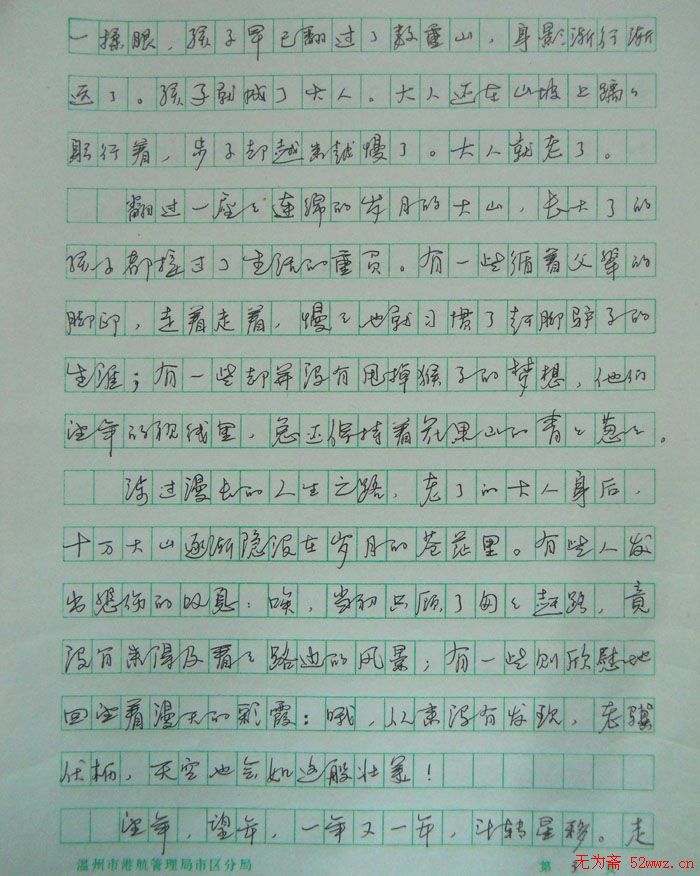 一揉眼，孩子早已翻过了数重山，身影渐行渐
远了。孩子就成了大人。大人还在山坡上蹒々
跚行着，步子却越来越慢了。大人就老了。
翻过一座々连绵的岁月的大山，长大了的
孩子都接过了生活的重负。有一些循着父辈的
脚印，走着走着，慢々地就习惯了赶脚驴子的
生涯；有一些却并没有甩掉猴子的梦想，他们
望年的视线里，总还保持着花果山的青々葱々。
涉过漫长的人生之路，老了的大人身后，
十万大山逐渐隐没在岁月的苍茫里。有些人发
出感伤的叹息：唉，当初只顾了匆々赶路，竟
没有来得及看々路边的风景；有一些则欣慰地
回望着漫天的彩霞：哦，从来没有发现，老骥
伏枥，天空也会如这般壮美！
望年，望年，一年又一年，斗转星移。走
温州市港航管理局市区分局
第 页
无为斋 52wwz.cn